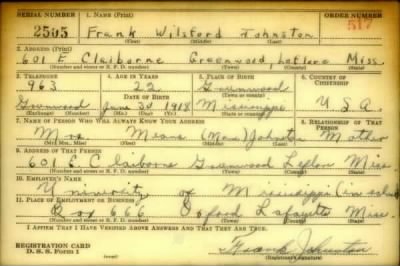 SERIAL NUMBER 1. NAME (Print) ORDER NUMBER
2505 Frank Wilsford Johnston 517
(First) (Middle) (Last)
2. ADDRESS (Print)
601 E Claiborne Greenwood Leflore Miss
(Number and street or R. F. D. number) (Town) (County) (State)
3. TELEPHONE 4. AGE IN YEARS 5. PLACE OF BIRTH 6. COUNTRY OF CITIZENSHIP
963 22 Greenwood
DATE OF BIRTH
Greenwood June 30 1918 Mississippi U.S.A.
(Exchange) (Number) (Mo.) (Day) (Yr.) (State or country)
7. NAME OF PERSON WHO WILL ALWAYS KNOW YOUR ADDRESS 8. RELATIONSHIP OF THAT PERSON
Mrs Means Johnston Mother
(Mr., Mrs., Miss) (First) (Middle) (Last)
9. ADDRESS OF THAT PERSON
601 E Claiborne Greenwood Leflore Miss
(Number and street or R. F. D. number) (Town) (County) (State)
10. EMPLOYER'S NAME
University of Mississippi (in school
11. PLACE OF EMPLOYMENT OR BUSINESS
Box 666 Oxford Lafayette Miss.
(Number and street or R. F. D. number) (Town) (County) (State)
I AFFIRM THAT I HAVE VERIFIED ABOVE ANSWERS AND THAT THEY ARE TRUE.
REGISTRATION CARD
D. S. S. Form 1 Frank Johnston